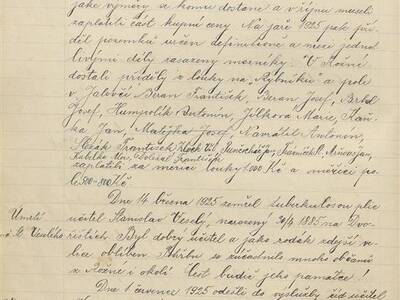 jaké výměry a komu dostane a v říjnu museli
zaplatiti část kupné ceny. Na jaře 1925 pak pří-
děl pozemků určen definitivně a mezi jednot
livými díly zasazeny mezníky. V Kožné
dostali příděly z louky na „Rybníků" a pole
v Jalovčí Buan František, Beran Josef,
Josef, Humpolík Antonín, Jílková Marie,
Jan, Matějka Josef, Namátal Antonín,
Slezák František,
Doležal František
zaplatili za měřici louky 1000 Kč a měřici po-
le 500-800 Kč
Dne 14 března 1925 zemřel tuberkulosou plic
učitel Stanislav Veselý, narozený 30/4 1885 na Dvo-
rištích. Byl dobrý učitel a jako rodák zdejší ve-
lice oblíben. Pohřbu se zúčastnilo mnoho občanů
z Kožné i okolí. Čest budiž jeho památce!
Dne 1 července 1925 odešel do výslužby říd. učitel
Úmrtí
St. Veselého